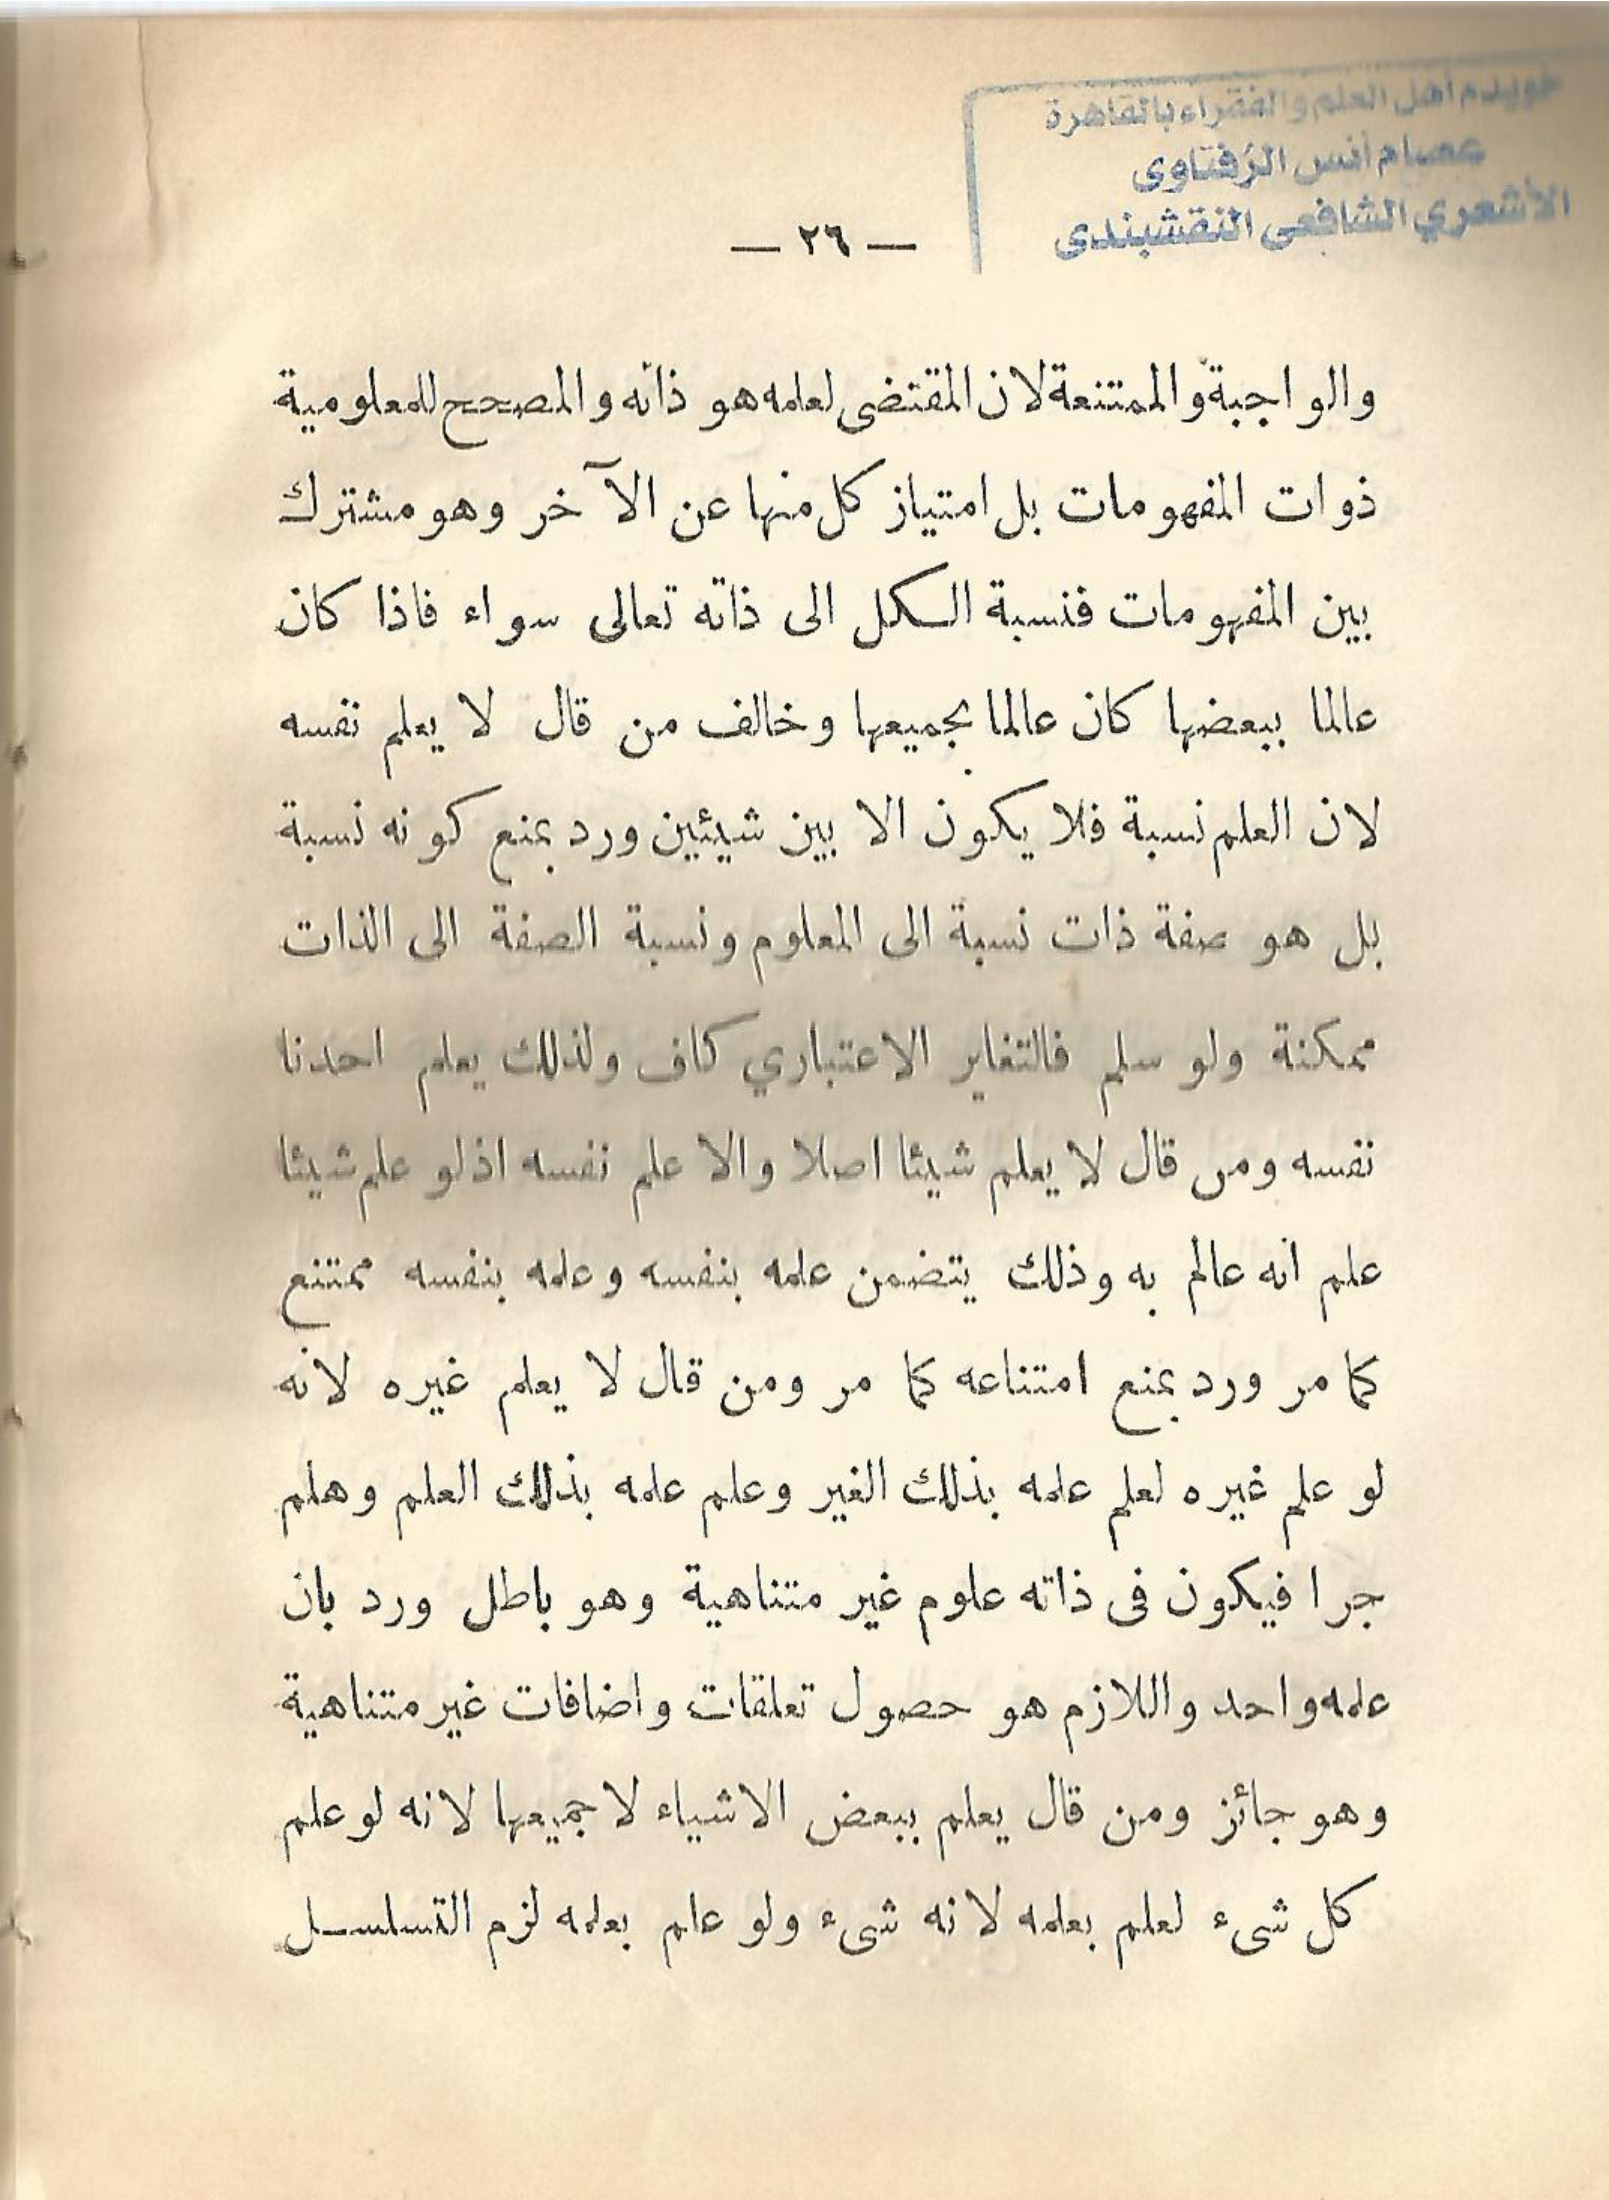 خويدم أهل العلم والفقراء بالقاهرة
عصام أنس الزفتاوى
الأشعري الشافعى النقشبندى
— ٢٦ —
والواجبة والممتنعة لان المقتضى لعلمه هو ذاته والمصحح للمعلومية
ذوات المفهومات بل امتياز كل منها عن الآخر وهو مشترك
بين المفهومات فنسبة الكل الى ذاته تعالى سواء فاذا كان
عالما ببعضها كان عالما بجميعها وخالف من قال لا يعلم نفسه
لان العلم نسبة فلا يكون الا بين شيئين ورد بمنع كونه نسبة
بل هو صفة ذات نسبة الى المعلوم ونسبة الصفة الى الذات
ممكنة ولو سلم فالتغاير الاعتباري كاف ولذلك يعلم احدنا
نفسه ومن قال لا يعلم شيئا اصلا والا علم نفسه اذ لو علم شيئا
علم انه عالم به وذلك يتضمن علمه بنفسه وعلمه بنفسه ممتنع
كما مر ورد بمنع امتناعه كما مر ومن قال لا يعلم غيره لانه
لو علم غيره لعلم علمه بذلك الغير وعلم علمه بذلك العلم وهلم
جرا فيكون فى ذاته علوم غير متناهية وهو باطل ورد بان
علمه واحد واللازم هو حصول تعلقات واضافات غير متناهية
وهو جائز ومن قال يعلم ببعض الاشياء لا جميعها لانه لو علم
كل شىء لعلم بعلمه لانه شىء ولو علم بعلمه لزم التسلسل